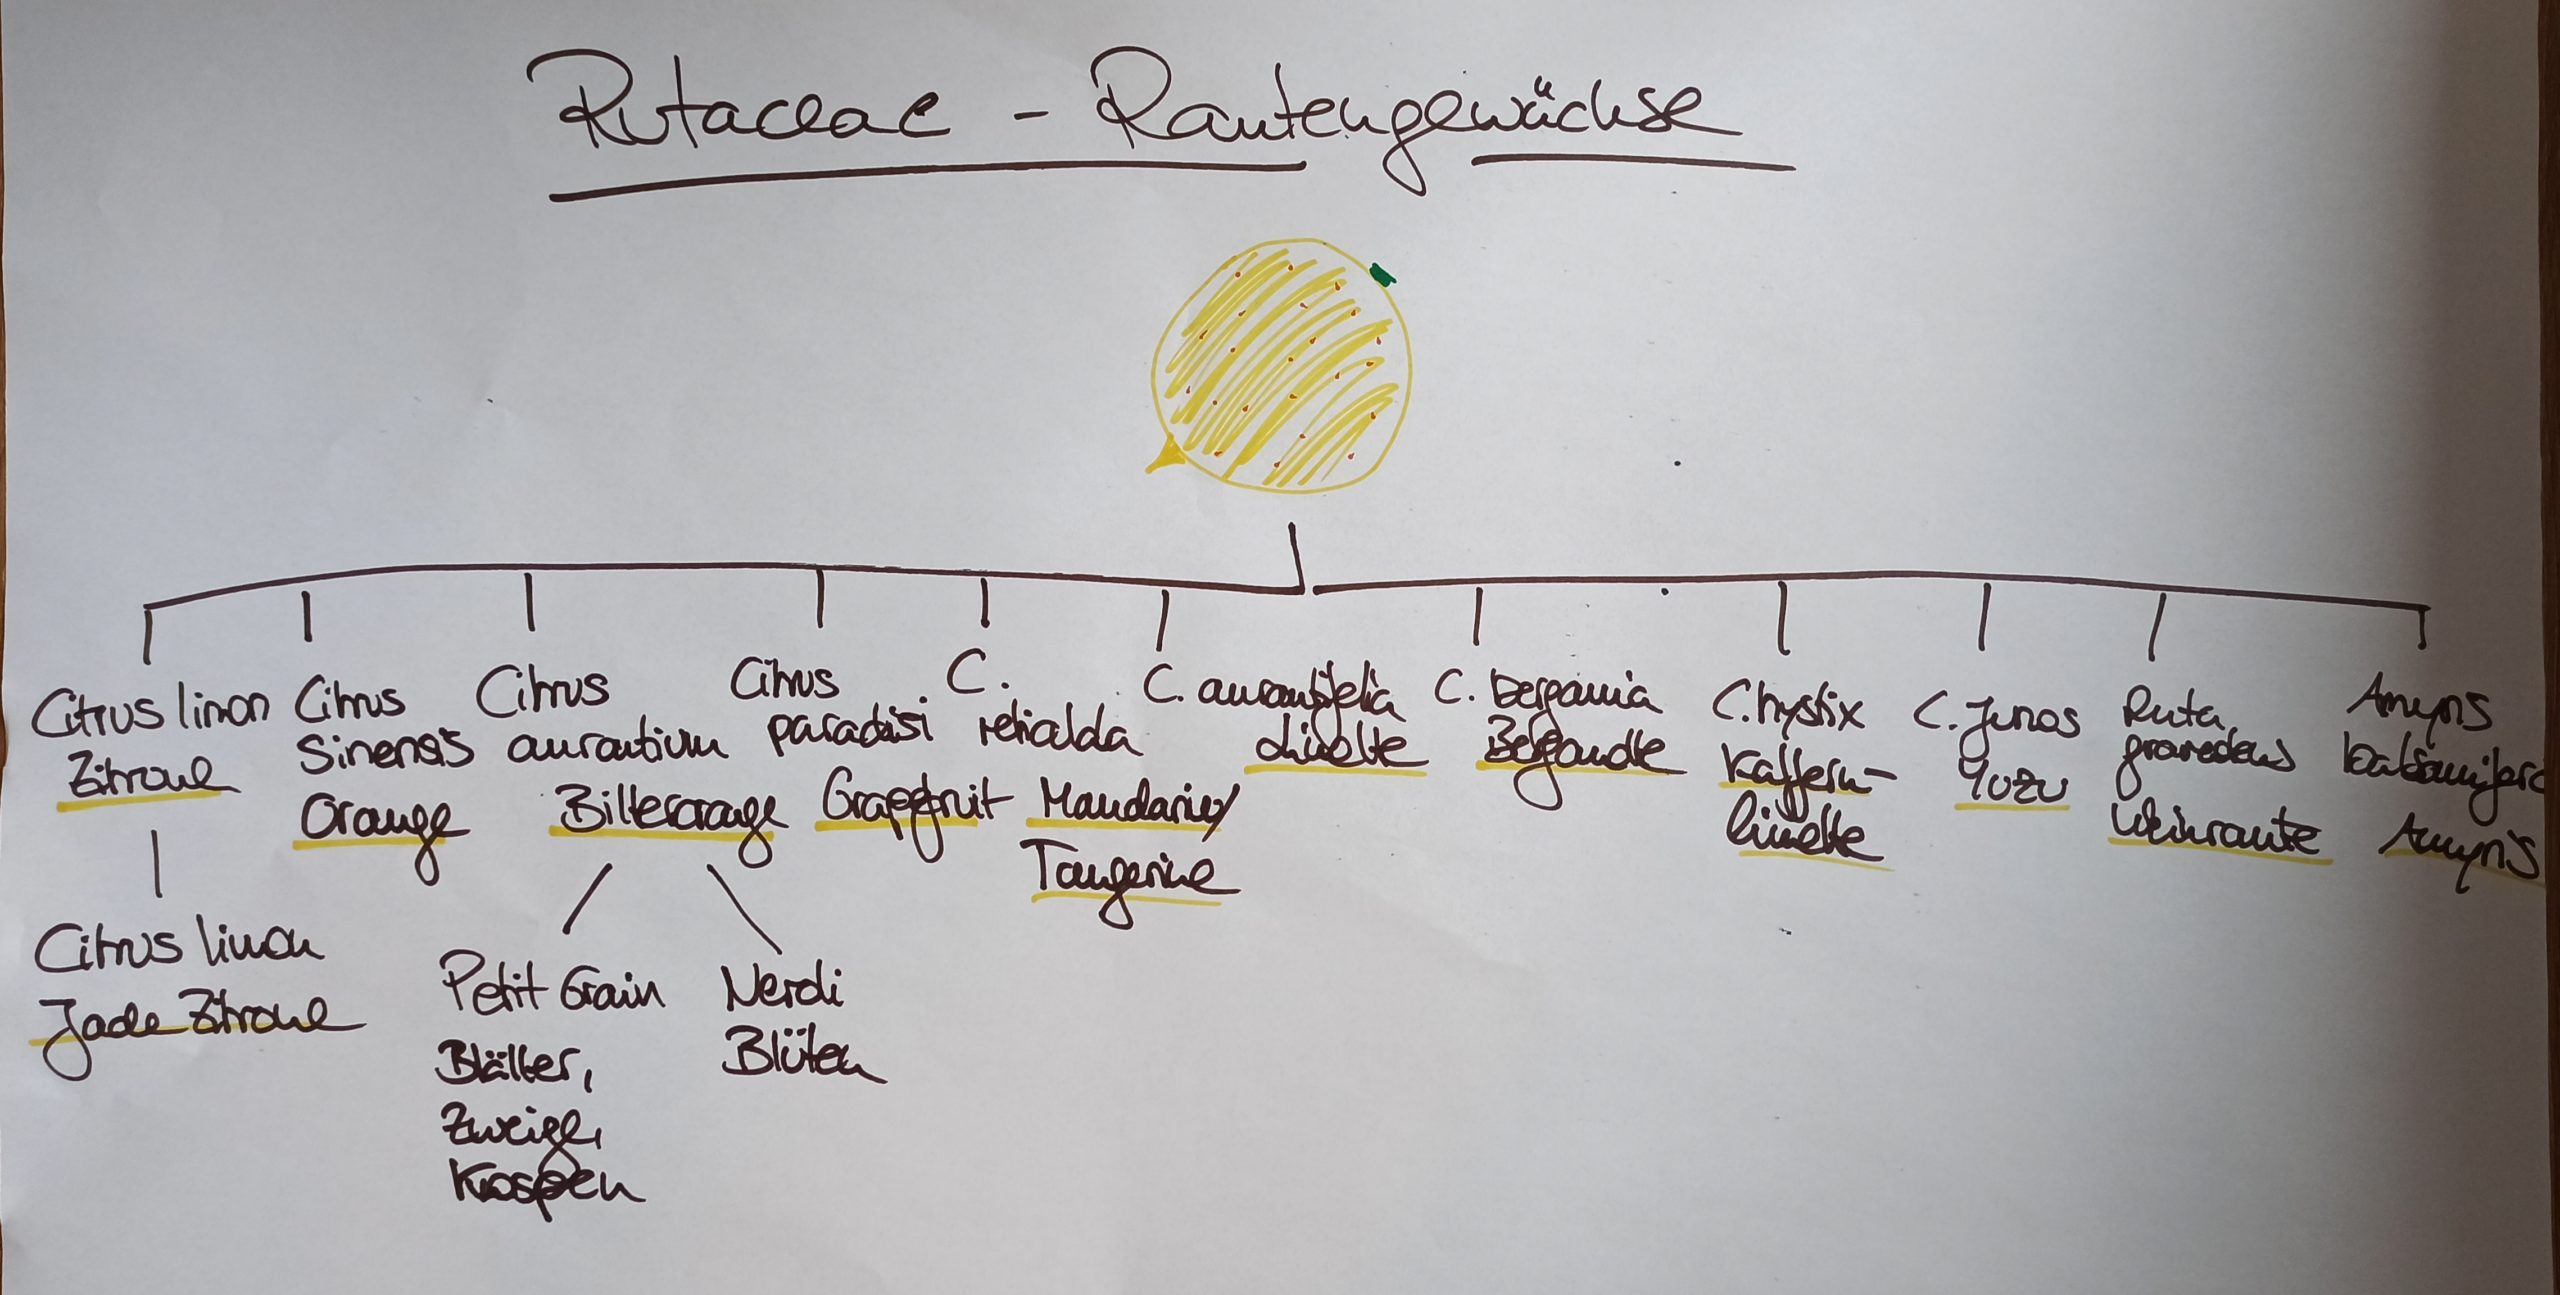 Rutaceae - Rautengewächse
Citrus limon
Zitrone
Citrus limon
Jade Zitrone
Citrus
Sinensis
Orange
Citrus
aurantium
Bitterorange
Petit Grain
Blätter,
Zweige,
Knospen
Neroli
Blüten
Citrus
paradisi
Grapefruit
C.
Mandarine/
Tangerine
C. aurantifolia
Limette
C. bergamia
Bergamotte
C. hystrix
Kaffern-
limette
C. Junos
Yuzu
Ruta
graveolens
Weinraute
Amyris
balsamifera
Amyris